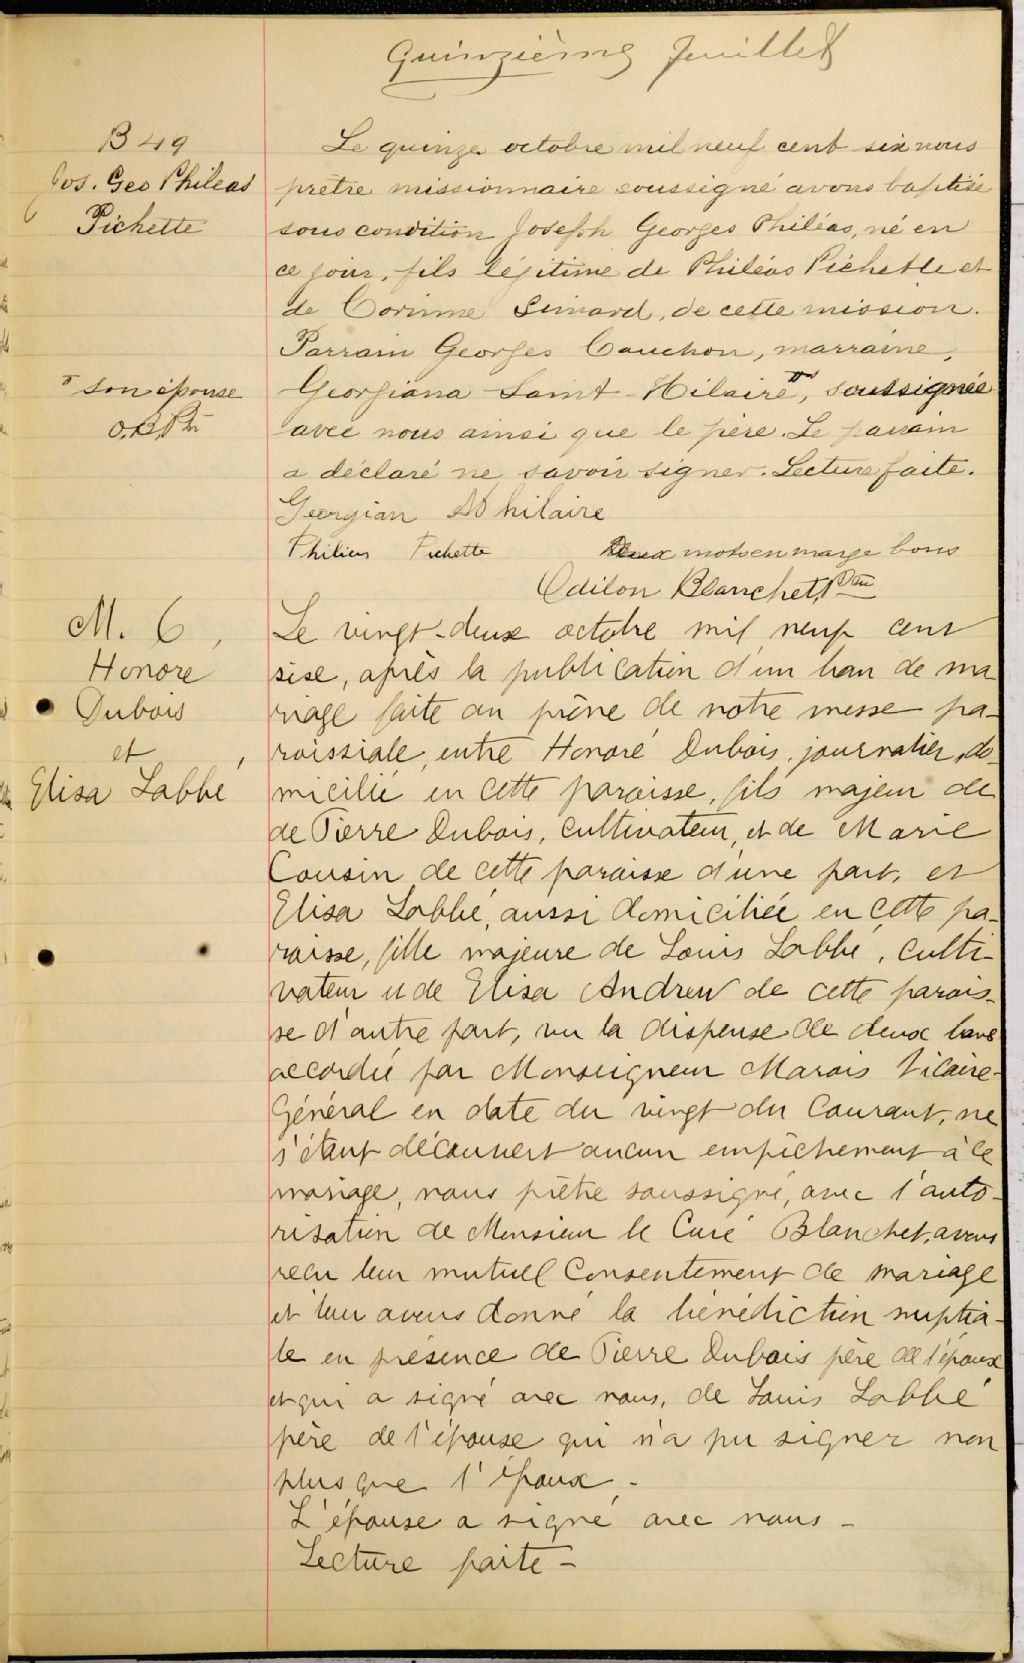 Quinzième feuillet
B 49
Jos. Geo Phileas
Pichette
Le quinze octobre mil neuf cent six nous
prêtre missionnaire soussigné avons baptisé
sous condition Joseph Georges Philéas, né en
ce jour, fils légitime de Philéas Pichette et
de Corinne Simard, de cette mission.
Parrain Georges Cauchon, marraine,
Georgiana Saint-Hilaire #, soussignée
# son épouse
O.B. Ptre
avec nous ainsi que le père. Le parrain
a déclaré ne savoir signer. Lecture faite.
Georgian St hilaire
Phileas Pichette
Deux mots en marge bons
Odilon Blanchet, Ptre
M. 6
Honore
Dubois
et
Elisa Labbe
Le vingt-deux octobre mil neuf cent
sise, après la publication d'un ban de ma
riage faite au prône de notre messe pa-
roissiale, entre Honoré Dubois, journalier, do-
micilié en cette paroisse, fils majeur de
de Pierre Dubois, cultivateur, et de Marie
Cousin de cette paroisse d'une part, et
Elisa Labbé, aussi domiciliée en cette pa-
roisse, fille majeure de Louis Labbé, culti-
vateur et de Elisa Andrew de cette parois-
se d'autre part, vu la dispense de deux bans
accordée par Monseigneur Marois Vicaire-
Général en date du vingt du Courant, ne
s'étant découvert aucun empêchement à ce
mariage, nous prêtre soussigné, avec l'auto-
risation de Monsieur le Curé Blanchet, avons
recu leur mutuel Consentement de mariage
et leur avons donné la bénédiction nuptia-
le en présence de Pierre Dubois père de l'époux
et qui a signé avec nous, de Louis Labbé
père de l'épouse qui n'a pu signer non
plus que l'époux.-
L'épouse a signé avec nous -
Lecture faite -